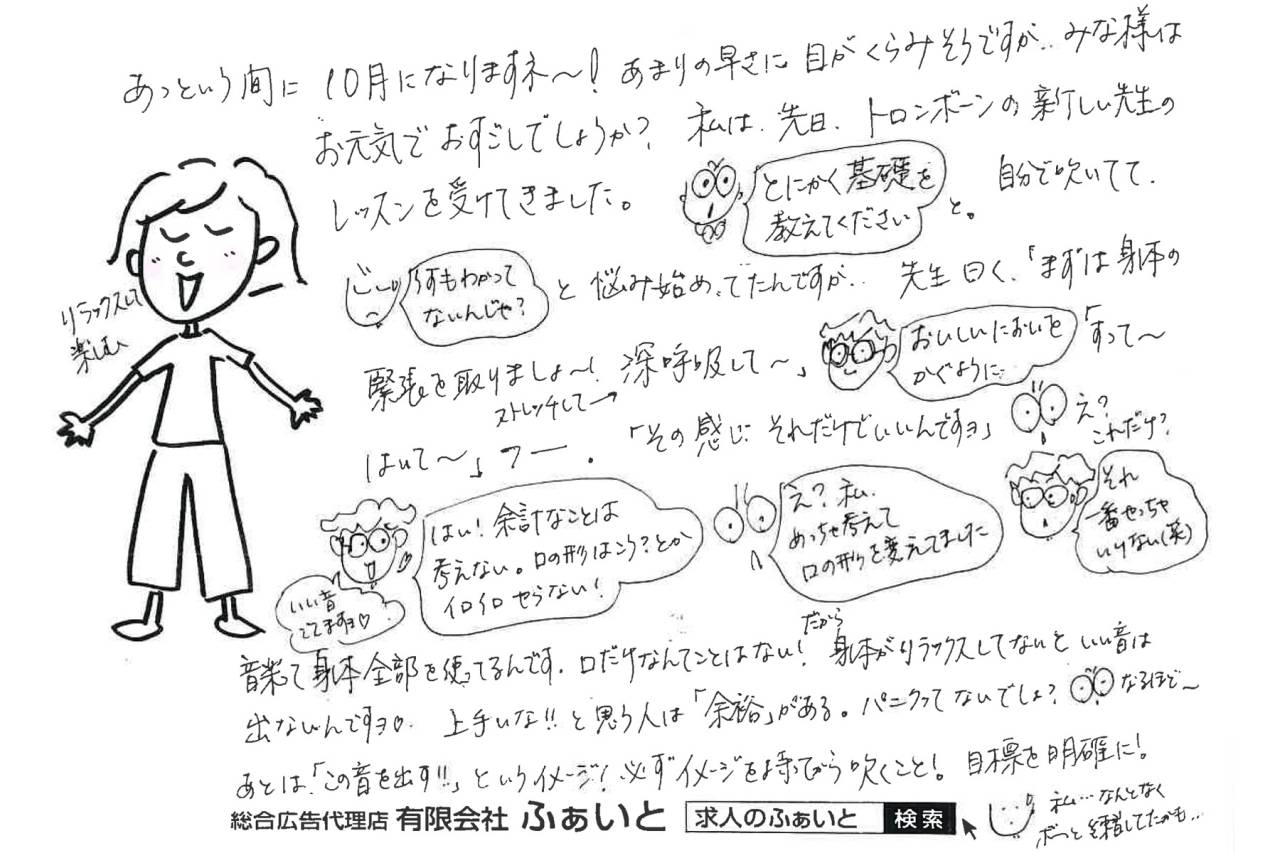 あっという間に 10月になりますネ～! あまりの早さに 目がくらみそうですが.. みな様は
お元気で おすごしでしょうか? 私は、先日、トロンボーンの新しい先生の
レッスンを受けてきました。
とにかく基礎を
教えてください
と。 自分で吹いてて、
リラックスして
楽しむ
うすもわかって
ないんじゃ?
と 悩み始めてたんですが.. 先生曰く、「まずは身体の
緊張を取りましょ～! 深呼吸して～」
ストレッチして→
おいしいにおいを
かぐように…
「すって～
はいて～」フー。 「その感じ それだけでいいんですヨ」
え?
これだけ?
いい音
でてますヨ♡
はい! 余計なことは
考えない。口の形はこう?とか
イロイロ やらない!
え? 私、
めっちゃ考えて
口の形を変えてました
それ
一番やっちゃ
いけない(笑)
音楽て身体全部を使ってるんです。口だけなんてことはない! だから 身体がリラックスしてないと いい音は
出ないんですヨ。 上手いな!! と思う人は「余裕」がある。パニクってないでしょ? なるほど～
あとは「この音を出す!!」というイメージ! 必ずイメージを持ってから吹くこと! 目標を明確に!
総合広告代理店 有限会社 ふぁいと 求人のふぁいと 検索
私…なんとなく
ボーっと練習してたかも…